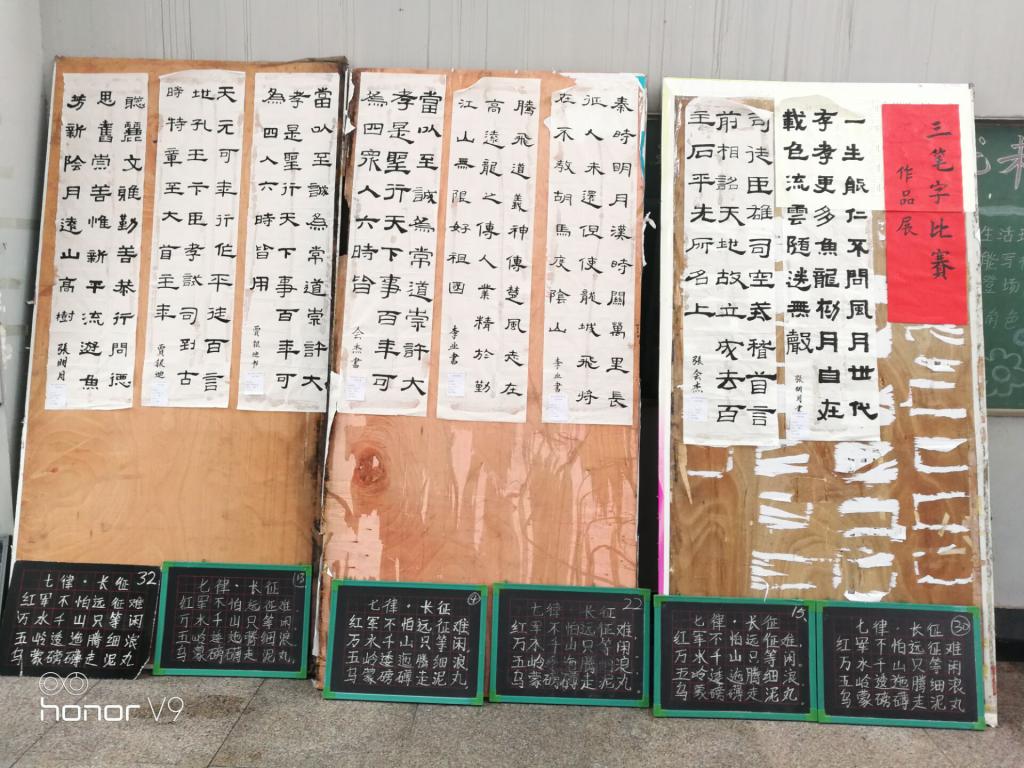 三笔字比赛
作品展
一生能仁不問風月世代
孝孝更多魚龍初月自在
載色流雲随迷無聲
張明月書
司徒臣雄司空義稽首言
前相詔天地故立成去百
主石平先所名上
張会杰
秦時明月漢時關萬里長
征人未還但使龍城飛将
在不教胡馬度陰山
李业書
騰飛道義神傳楚風走在
高遠龍之傳人業精於勤
江山無限好祖國
李业書
當以至誠為常道崇許大
孝是聖行天下事百年可
為四衆人六時皆
会杰書
當以至誠為常道崇許大
孝是聖行天下事百年可
為四人六時皆用
天元可年行作平徒百言
地孔王下臣孝試司到古
時特章至大首主年
聰麗文雅勤善恭行問德
思舊崇善惟新平流遊魚
芳新陰月遠山高樹
張明月
七律·长征 32
红军不怕远征难
万水千山只等闲
五岭逶迤腾细浪
乌蒙磅礴走泥丸
七律·长征 13
红军不怕远征难,
万水千山只等闲。
五岭逶迤腾细浪,
乌蒙磅礴走泥丸,
七律·长征
红军不怕远征难
万水千山只等闲
五岭逶迤腾细浪
乌蒙磅礴走泥丸
七律·长征 22
红军不怕远征难,
万水千山只等闲。
五岭逶迤腾细浪
乌蒙磅礴走泥丸
七律·长征 15
红军不怕远征难
万水千山只等闲
五岭逶迤腾细浪
乌蒙磅礴走泥丸
七律·长征 30
红军不怕远征难
万水千山只等闲
五岭逶迤腾细浪
乌蒙磅礴走泥丸
生活
能写
登场
角色
honor V9